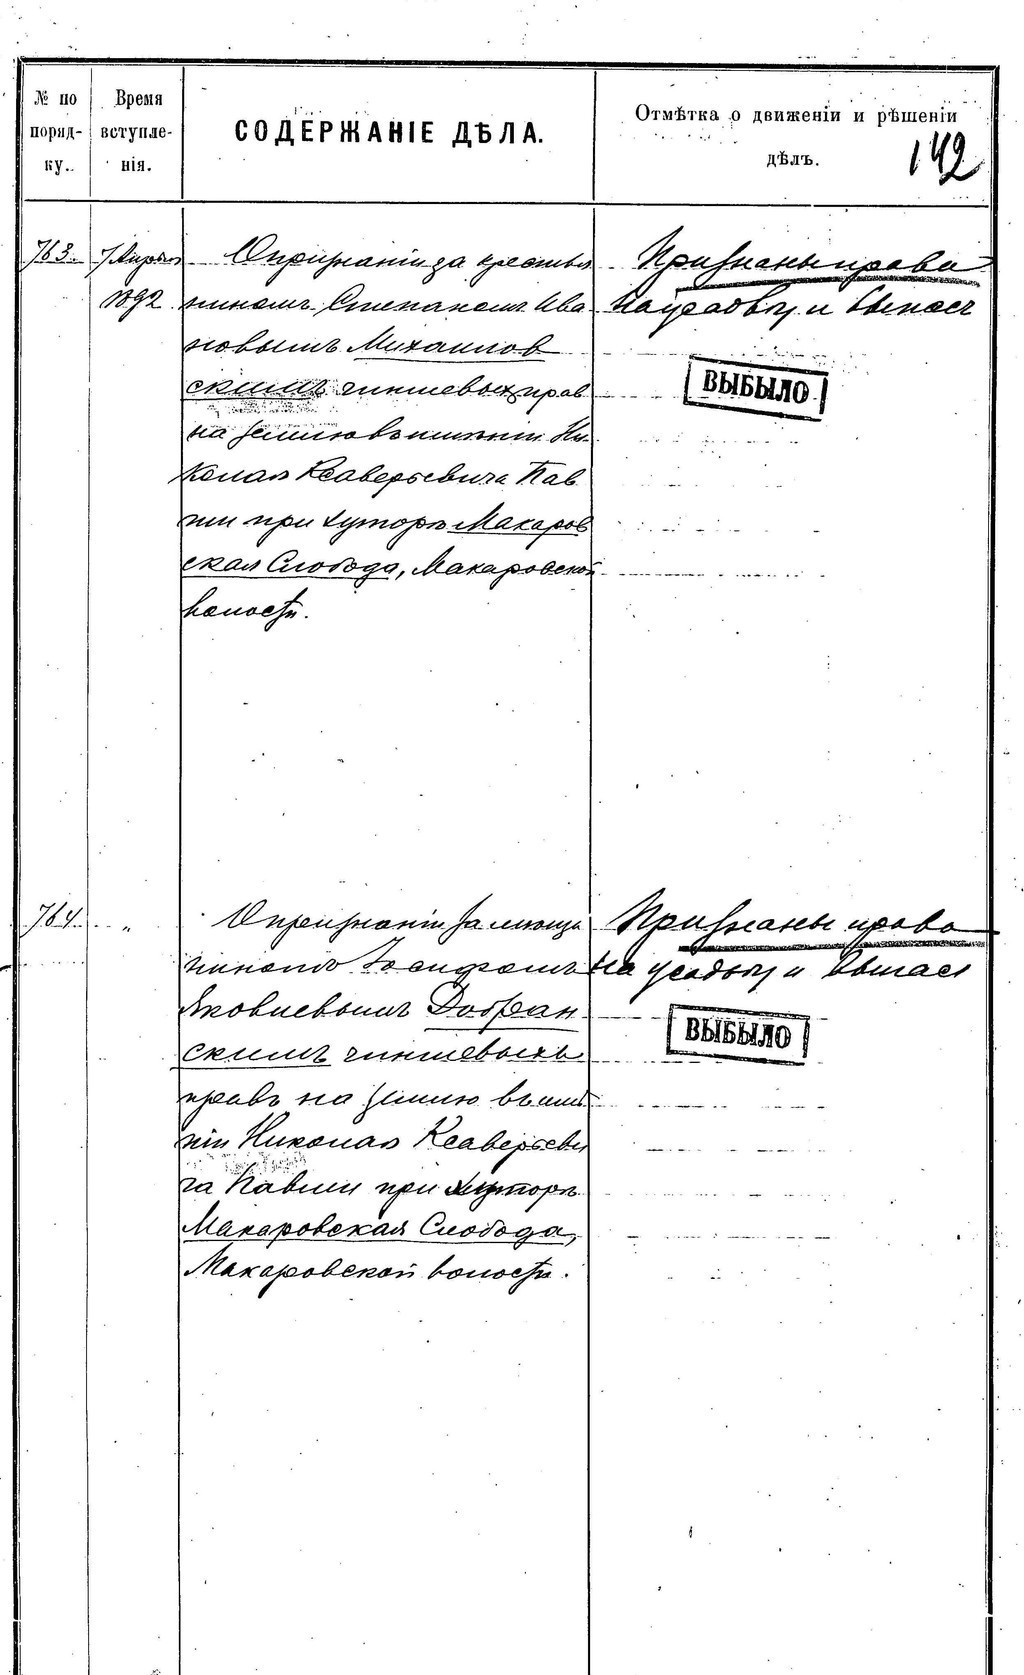 № по
поряд-
ку.
Время
вступле-
нія.
СОДЕРЖАНІЕ ДѢЛА.
Отмѣтка о движеніи и рѣшеніи
дѣлъ.
142
763
7 Апрѣля
1892
О признаніи за крестья
ниномъ Степаномъ Ива
новымъ Михайлов
скимъ чиншевыхъ прав
на землю въ имѣніи Ни
колая Ксаверьевича Пав
ши при хуторѣ Макаров
ская Слобода, Макаровской
волости.
Признаны права
на усадьбу и выпасъ
ВЫБЫЛО
764
"
О признаніи за мѣща
ниномъ Іосифомъ
Яковлевымъ Добрян
скимъ чиншевыхъ
правъ на землю въ имѣ
ніи Николая Ксаверьеви
ча Павши при хуторѣ
Макаровская Слобода,
Макаровской волости.
Признаны права
на усадьбу и выпасъ
ВЫБЫЛО